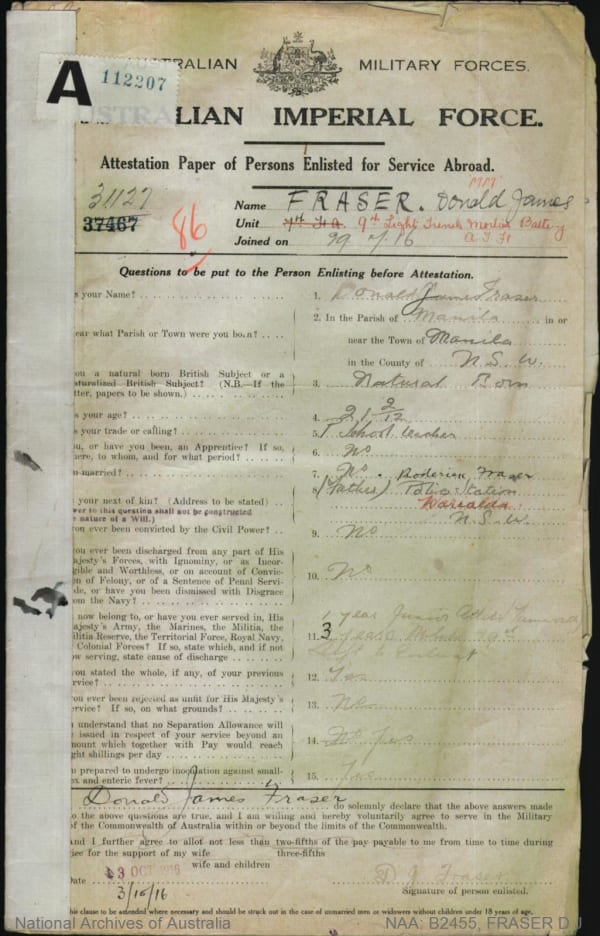 A
112207
RALIAN MILITARY FORCES.
LIAN IMPERIAL FORCE.
Attestation Paper of Persons Enlisted for Service Abroad.
31127
37467
86
MM
Name FRASER. Donald James
Unit 9th Light Trench Mortar Battery
A.I.F.
Joined on 16
Questions to be put to the Person Enlisting before Attestation.
s your Name?
1. Donald James Fraser
2. In the Parish of Manila in or
ear what Parish or Town were you born?
near the Town of Manila
in the County of N.S.W.
ou a natural born British Subject or a
turalized British Subject? (N.B.—If the
tter, papers to be shown.)
3. Natural Born
s your age?
4. 21 2/12
s your trade or calling?
5. School teacher
u, or have you been, an Apprentice? If so,
ere, to whom, and for what period?
6. No
married?
7. No. Roderick Fraser
your next of kin? (Address to be stated)
8. (Father) Police Station
wer to this question shall not be construed
e nature of a Will.)
Warialda
N.S.W.
ou ever been convicted by the Civil Power?
9. No
ou ever been discharged from any part of His
ajesty's Forces, with Ignominy, or as Incor-
gible and Worthless, or on account of Convic-
on of Felony, or of a Sentence of Penal Servi-
de, or have you been dismissed with Disgrace
om the Navy?
10. No
now belong to, or have you ever served in, His
ajesty's Army, the Marines, the Militia, the
ilitia Reserve, the Territorial Force, Royal Navy,
Colonial Forces? If so, state which, and if not
ow serving, state cause of discharge
1 year Junior Cadets
11. 3 years
Left to
you stated the whole, if any, of your previous
rvice?
12. Yes
ou ever been rejected as unfit for His Majesty's
ervice? If so, on what grounds?
13. No
understand that no Separation Allowance will
issued in respect of your service beyond an
mount which together with Pay would reach
ght shillings per day
14. Yes
prepared to undergo inoculation against small-
ox and enteric fever?
15. Yes
Donald James Fraser do solemnly declare that the above answers made
o the above questions are true, and I am willing and hereby voluntarily agree to serve in the Military
of the Commonwealth of Australia within or beyond the limits of the Commonwealth.
And I further agree to allot not less than two-fifths of the pay payable to me from time to time during
three-fifths
ice for the support of my wife
wife and children
3 OCT 1916
Date
3/10/16
D J Fraser
Signature of person enlisted.
his clause to be amended where necessary and should be struck out in the case of unmarried men or widowers without children under 18 years of age.
National Archives of Australia
NAA: B2455, FRASER D J